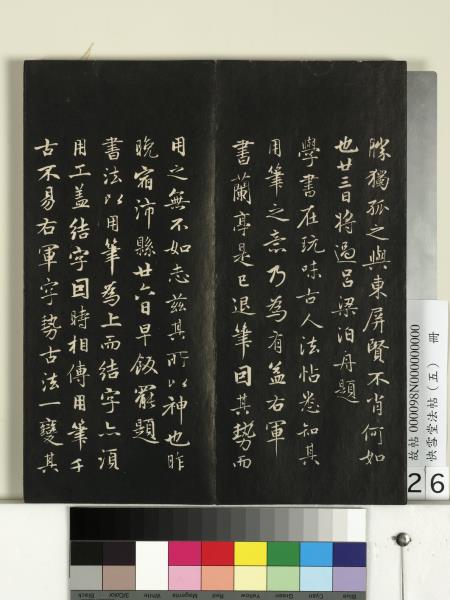 勝獨孤之與東屏賢不肖何如
也廿三日將過呂梁泊舟題
學書在玩味古人法帖悉知其
用筆之意乃為有益右軍
書蘭亭是已退筆因其勢而
用之無不如志茲其所以神也昨
晚宿沛縣廿六日早飯罷題
書法以用筆為上而結字亦須
用工蓋結字因時相傳用筆千
古不易右軍字勢古法一變其
故帖 000098N000000000
快雪堂法帖(五) 冊
26
Blue
Cyan
Green
Yellow
Red
Magenta
White
3/Color
Black